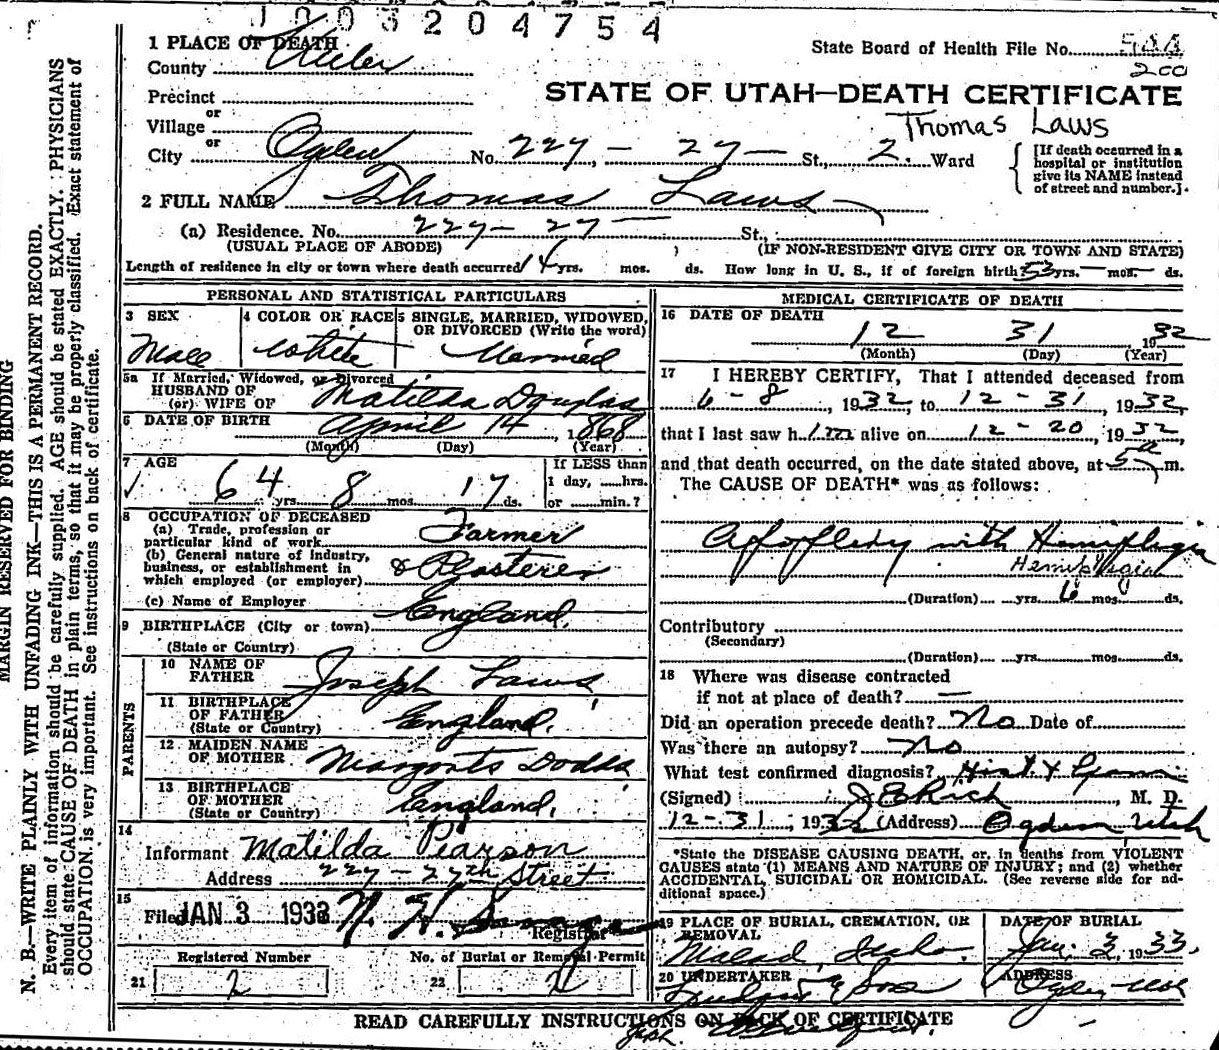 1003204754
1 PLACE OF DEATH
County Weber
State Board of Health File No.
200
Precinct
or
Village
or
STATE OF UTAH—DEATH CERTIFICATE
Thomas Laws
City Ogden No. 227 - 27 - St., 2. Ward
[If death occurred in a
hospital or institution
give its NAME instead
of street and number.].
2 FULL NAME Thomas Laws
(a) Residence. No. 227 - 27 - St.,
(USUAL PLACE OF ABODE) (IF NON-RESIDENT GIVE CITY OR TOWN AND STATE)
Length of residence in city or town where death occurred 14 yrs. mos. ds. How long in U. S., if of foreign birth? 53 yrs. — mos. — ds.
PERSONAL AND STATISTICAL PARTICULARS
3 SEX
Male
4 COLOR OR RACE
White
5 SINGLE, MARRIED, WIDOWED,
OR DIVORCED (Write the word)
Married
5a If Married, Widowed, or Divorced
HUSBAND OF
(or) WIFE OF Matilda Douglas
6 DATE OF BIRTH April 14, 1868
(Month) (Day) (Year)
7 AGE
64 yrs. 8 mos. 17 ds.
If LESS than
1 day, ......hrs.
or ......min.?
8 OCCUPATION OF DECEASED
(a) Trade, profession or
particular kind of work Farmer
(b) General nature of Industry,
business, or establishment in
which employed (or employer) & Plasterer
(c) Name of Employer
9 BIRTHPLACE (City or town) England
(State or Country)
PARENTS
10 NAME OF
FATHER Joseph Laws
11 BIRTHPLACE
OF FATHER
(State or Country) England.
12 MAIDEN NAME
OF MOTHER Dodds
13 BIRTHPLACE
OF MOTHER
(State or Country) England.
14
Informant Matilda Pearson
Address 227 - 27th Street
15
Filed JAN 3 1933
Registrar
Registered Number
21 2
No. of Burial or Removal Permit
22 2
MEDICAL CERTIFICATE OF DEATH
16 DATE OF DEATH
12 31, 1932
(Month) (Day) (Year)
17 I HEREBY CERTIFY, That I attended deceased from
6 - 8, 1932, to 12 - 31, 1932,
that I last saw him alive on 12 - 20, 1932,
and that death occurred, on the date stated above, at 5 a m.
The CAUSE OF DEATH* was as follows:
Apoplexy with Hemiplegia
Hemiplegia
(Duration) yrs. 6 mos. ds.
Contributory
(Secondary)
(Duration) yrs. mos. ds.
18 Where was disease contracted
if not at place of death? —
Did an operation precede death? No Date of
Was there an autopsy? No
What test confirmed diagnosis? Hist. &
(Signed) Rich, M. D.
12 - 31, 1932 (Address) Ogden Utah
*State the DISEASE CAUSING DEATH, or, in deaths from VIOLENT
CAUSES state (1) MEANS AND NATURE OF INJURY; and (2) whether
ACCIDENTAL, SUICIDAL OR HOMICIDAL. (See reverse side for ad-
ditional space.)
19 PLACE OF BURIAL, CREMATION, OR
REMOVAL
Malad, Idaho.
DATE OF BURIAL
Jan. 3, 1933.
20 UNDERTAKER
& Sons
ADDRESS
Ogden Utah
READ CAREFULLY INSTRUCTIONS ON BACK OF CERTIFICATE
MARGIN RESERVED FOR BINDING
N. B.—WRITE PLAINLY WITH UNFADING INK—THIS IS A PERMANENT RECORD.
Every item of information should be carefully supplied. AGE should be stated EXACTLY. PHYSICIANS
should state CAUSE OF DEATH in plain terms, so that it may be properly classified. Exact statement of
OCCUPATION is very important. See instructions on back of certificate.